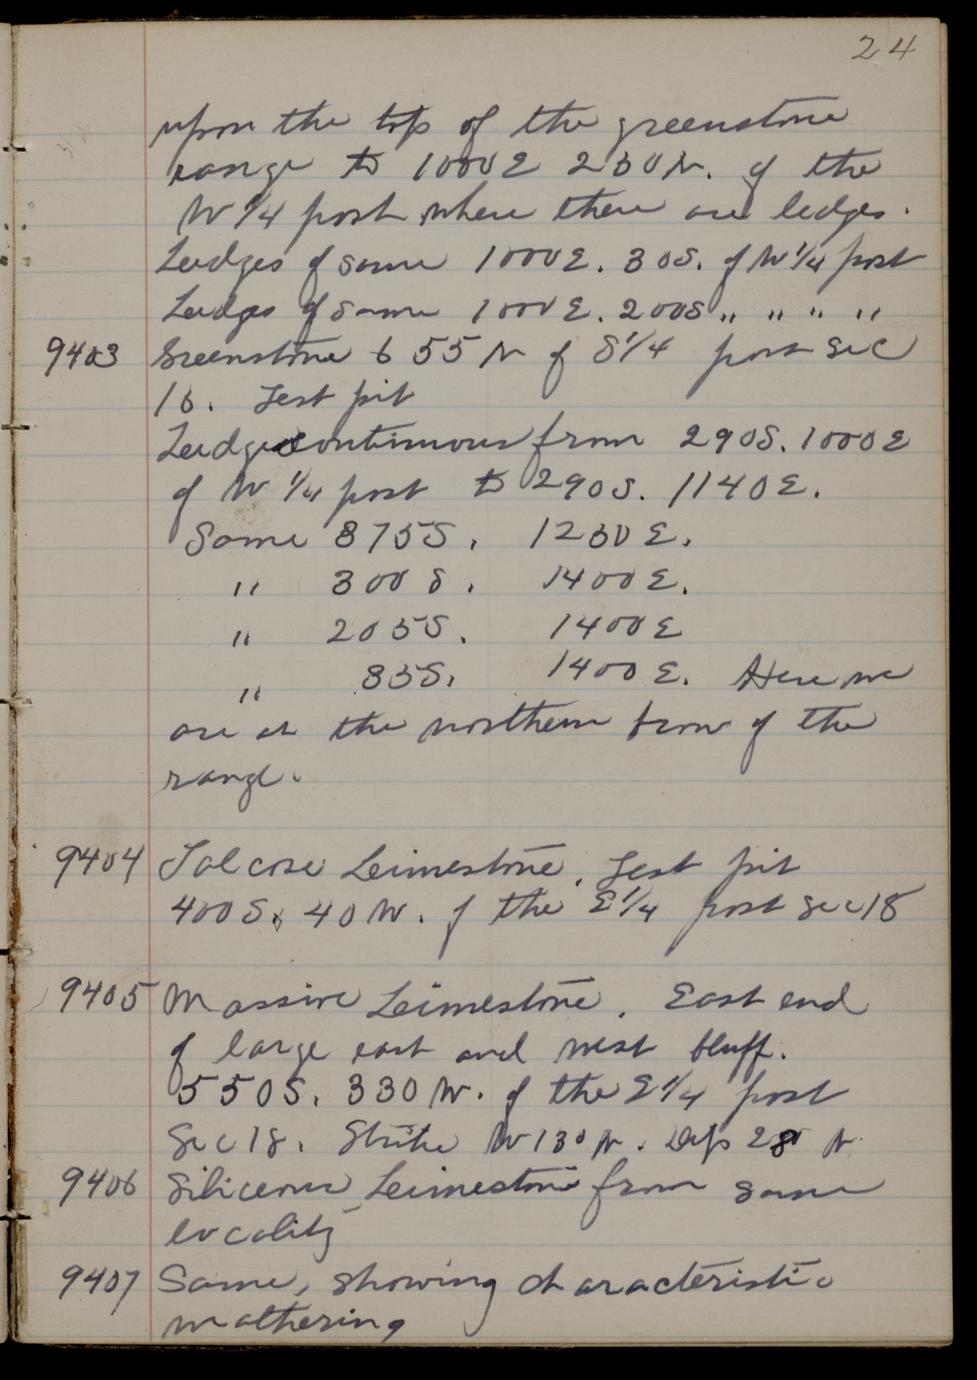 24
upon the top of the greenstone
range to 1000E 230N. of the
W 1/4 post where there are ledges.
Ledges of same 1000E. 30S. of W 1/4 post
Ledges of same 1000E. 200S " " " "
9403 Greenstone 655 N of S 1/4 post Sec
16. Test pit
Ledge continuous from 290S. 1000E
of W 1/4 post to 290S. 1140E.
Same 375S. 1230E.
" 300S. 1400E.
" 205S. 1400E
" 35S. 1400E. Here we
are at the northern brow of the
range.
9404 Talcose Leimestone. Test pit
400S. 40W. of the E 1/4 post Sec 18
9405 Massive Leimestone. East end
of large east and west bluff.
550S. 330W. of the E 1/4 post
Sec 18. Strike W 13° N. Dip 28° N
9406 Siliceous Leimestone from same
locality
9407 Same, showing characteristic
weathering